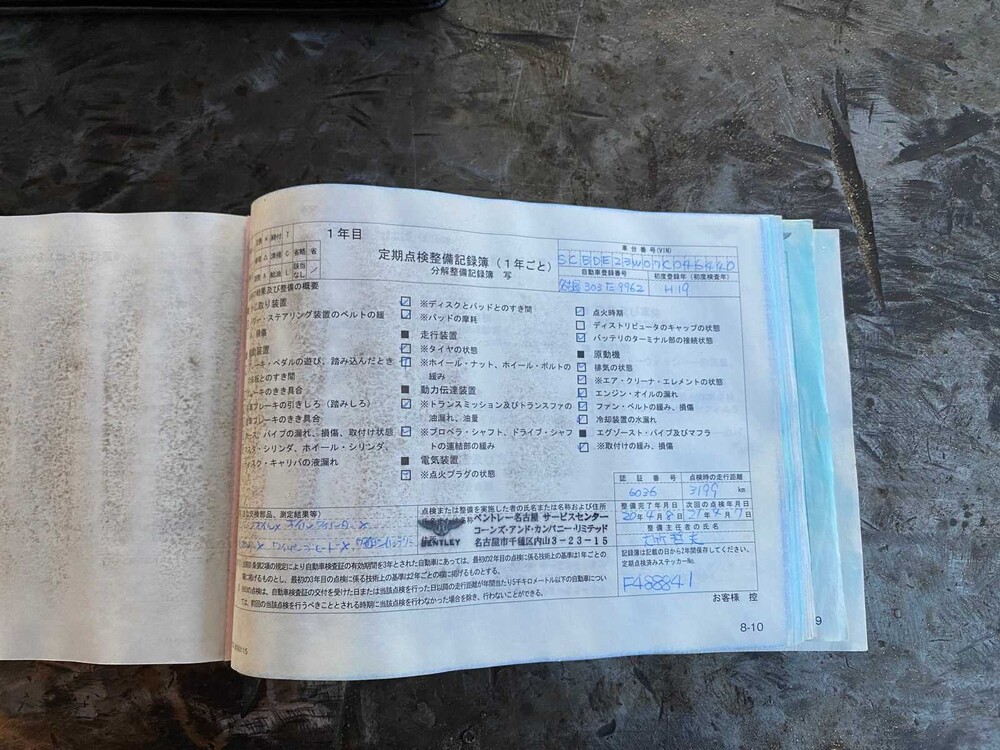 1年目
定期点検整備記録簿（1年ごと）
分解整備記録簿 写
車台番号(VIN)
SCBDE23W07C046440
自動車登録番号 初度登録年(初度検査年)
303 9962 H19
結果及び整備の概要
かじ取り装置
ステアリング装置のベルトの緩
み、損傷
ブレーキ・ペダルの遊び、踏み込んだとき
床板とのすき間
ブレーキのきき具合
ブレーキの引きしろ（踏みしろ）
ブレーキのきき具合
パイプの漏れ、損傷、取付け状態
シリンダ、ホイール・シリンダ、
ディスク・キャリパの液漏れ
※ディスクとパッドとのすき間
※パッドの摩耗
■ 走行装置
※タイヤの状態
※ホイール・ナット、ホイール・ボルトの
緩み
■ 動力伝達装置
※トランスミッション及びトランスファの
油漏れ、油量
※プロペラ・シャフト、ドライブ・シャフ
トの連結部の緩み
■ 電気装置
※点火プラグの状態
点火時期
ディストリビュータのキャップの状態
バッテリのターミナル部の接続状態
■ 原動機
排気の状態
※エア・クリーナ・エレメントの状態
エンジン・オイルの漏れ
ファン・ベルトの緩み、損傷
冷却装置の水漏れ
■ エグゾースト・パイプ及びマフラ
※取付けの緩み、損傷
交換部品、測定結果等）
点検または整備を実施した者の氏名または名称および住所
BENTLEY
ベントレー名古屋 サービスセンター
コーンズ・アンド・カンパニー・リミテッド
名古屋市千種区内山3-23-15
認証番号 点検時の走行距離
6036 3199 km
整備完了年月日 次回の点検年月日
20年4月8日 21年4月7日
整備主任者の氏名
記録簿は記載の日から2年間保存してください。
定期点検済みステッカーNo.
F488841
条第2項の規定により自動車検査証の有効期間を3年とされた自動車にあっては、最初の2年目の点検に係る技術上の基準は1年ごとの
欄に掲げるものとし、最初の3年目の点検に係る技術上の基準は2年ごとの欄に掲げるものとする。
の点検は、自動車検査証の交付を受けた日または当該点検を行った日以降の走行距離が年間当たり5千キロメートル以下の自動車につい
ては、前回の当該点検を行うべきこととされる時期に当該点検を行わなかった場合を除き、行わないことができる。
お客様 控
8-10
9